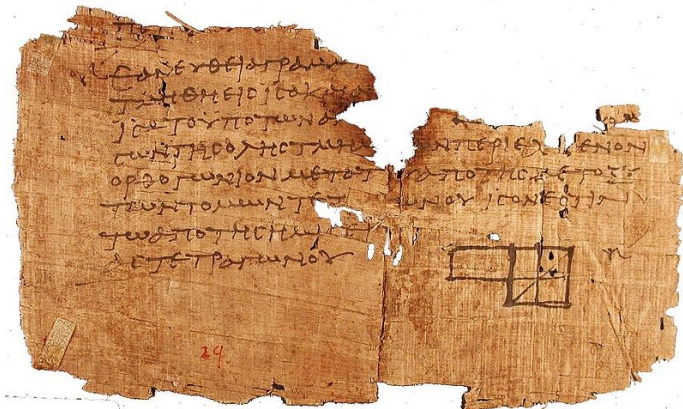 ΕΑΝ ΕΥΘΕΙΑ ΓΡΑΜΜ
ΤΜΗΘΗ ΕΙΣ ΙΣΑ ΚΑΙ
ΙΣΑ ΤΟ ΥΠΟ ΤΩΝ Α
ΤΩΝ ΤΗΣ ΟΛΗΣ ΤΜΗΜ ΩΝ ΠΕΡΙΕΧ ΜΕΝΟΝ
ΟΡΘΟΓΩΝΙΟΝ ΜΕΤΑ ΤΟΥ ΑΠΟ ΤΗΣ ΜΕΤΟΞΥ
ΤΩΝ ΤΟΜΩΝ ΤΕΤ ΩΝΟΥ ΙΣΟΝ ΕΣΤΙΝ
ΤΩ ΑΠΟ ΤΗΣ ΗΜΙΣΕΙ
ΑΣ ΤΕΤΡΑΓΩΝΟΥ
29.